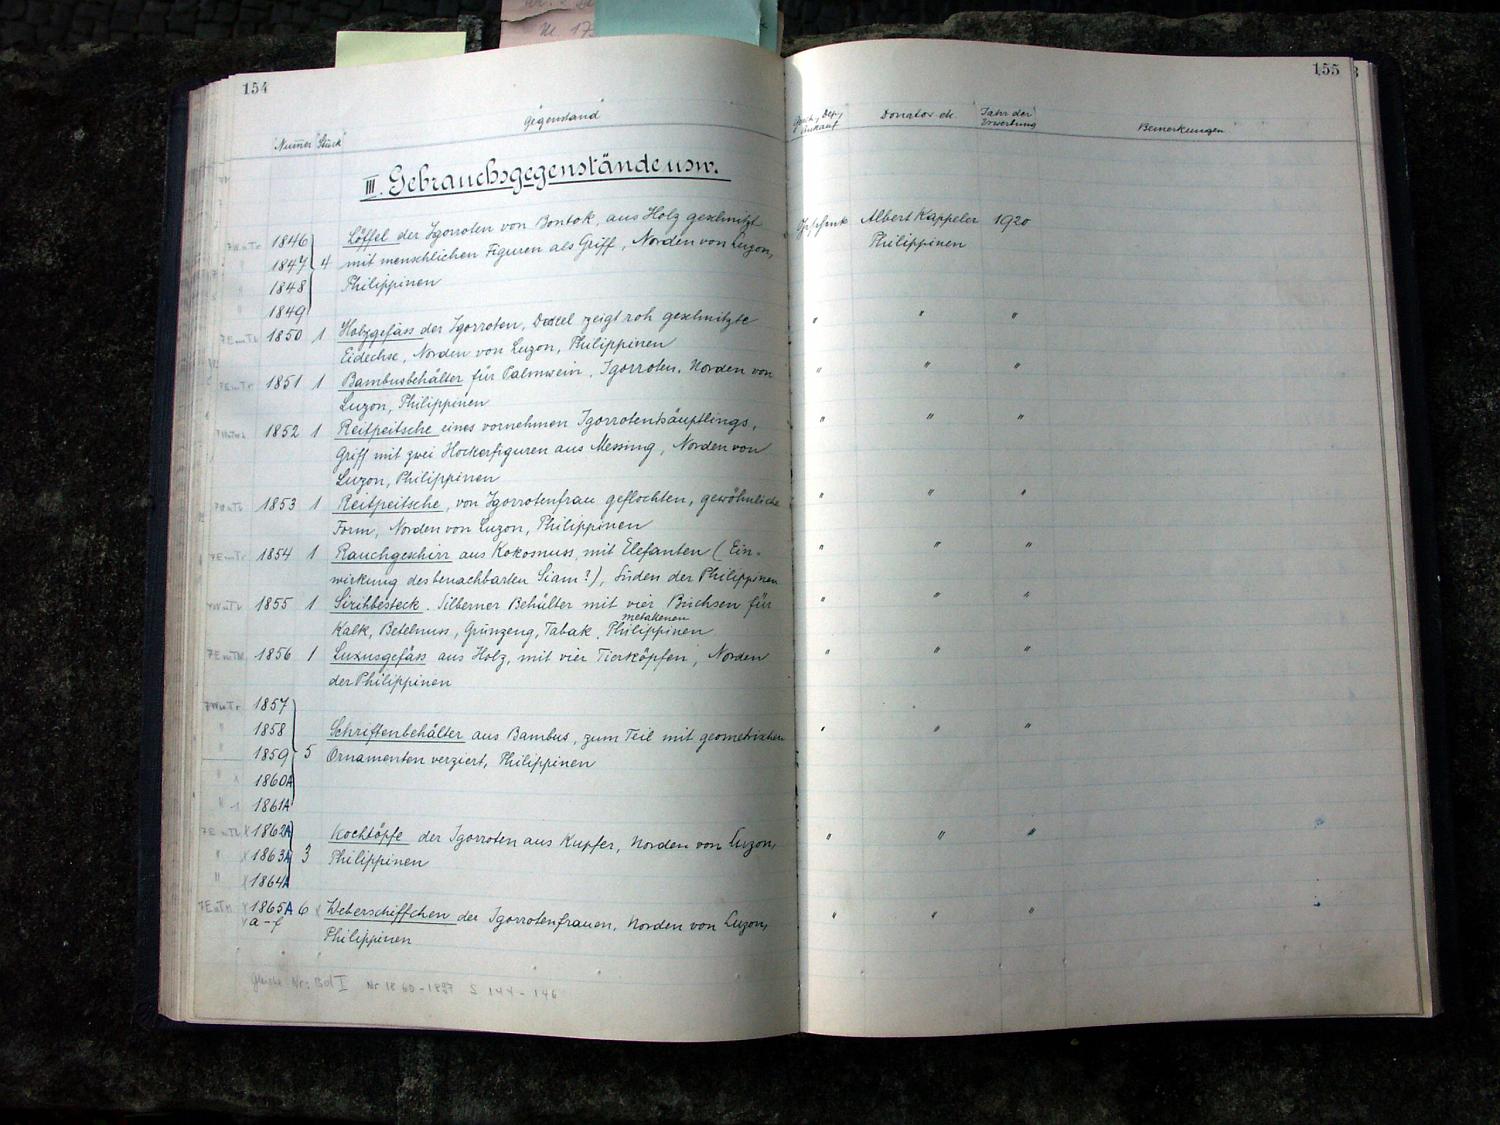 154
Gegenstand
Numer Stück
III. Gebrauchsgegenstände usw.
1846 Löffel der Igorroten von Bontok, aus Holz geschnitzt
1847 4 mit menschlichen Figuren als Griff, Norden von Luzon,
1848 Philippinen
1849
1850 1 Holzgefäss der Igorroten, Deckel zeigt roh geschnitzte
Eidechse, Norden von Luzon, Philippinen
1851 1 Bambusbehälter für Palmwein, Igorroten, Norden von
Luzon, Philippinen
1852 1 Reitpeitsche eines vornehmen Igorrotenhäuptlings,
Griff mit zwei Hockerfiguren aus Messing, Norden von
Luzon, Philippinen
1853 1 Reitpeitsche, von Igorrotenfrau geflochten, gewöhnliche
Form, Norden von Luzon, Philippinen
1854 1 Rauchgeschirr aus Kokosnuss, mit Elefanten (Ein-
wirkung des benachbarten Siam?), Süden der Philippinen
1855 1 Sirihbesteck. Silberner Behälter mit vier Büchsen für
metallenen
Kalk, Betelnuss, Grünzeug, Tabak, Philippinen
1856 1 Luxusgefäss aus Holz, mit vier Tierköpfen, Norden
der Philippinen
1857
1858 Schriftenbehälter aus Bambus, zum Teil mit geometrischen
1859 5 Ornamenten verziert, Philippinen
1860A
1861A
1862A Kochtöpfe der Igorroten aus Kupfer, Norden von Luzon,
1863A 3 Philippinen
1864A
1865A 6 Weberschiffchen der Igorrotenfrauen, Norden von Luzon,
a-f Philippinen
Gleiche Nr: Bd I Nr 1860-1897 S 144-146
155
Gesch., Dep., Donator etc. Jahr der
Ankauf Erwerbung Bemerkungen
Geschenk Albert Kappeler 1920
Philippinen
" " "
" " "
" " "
" " "
" " "
" " "
" " "
" " "
" " "
" " "